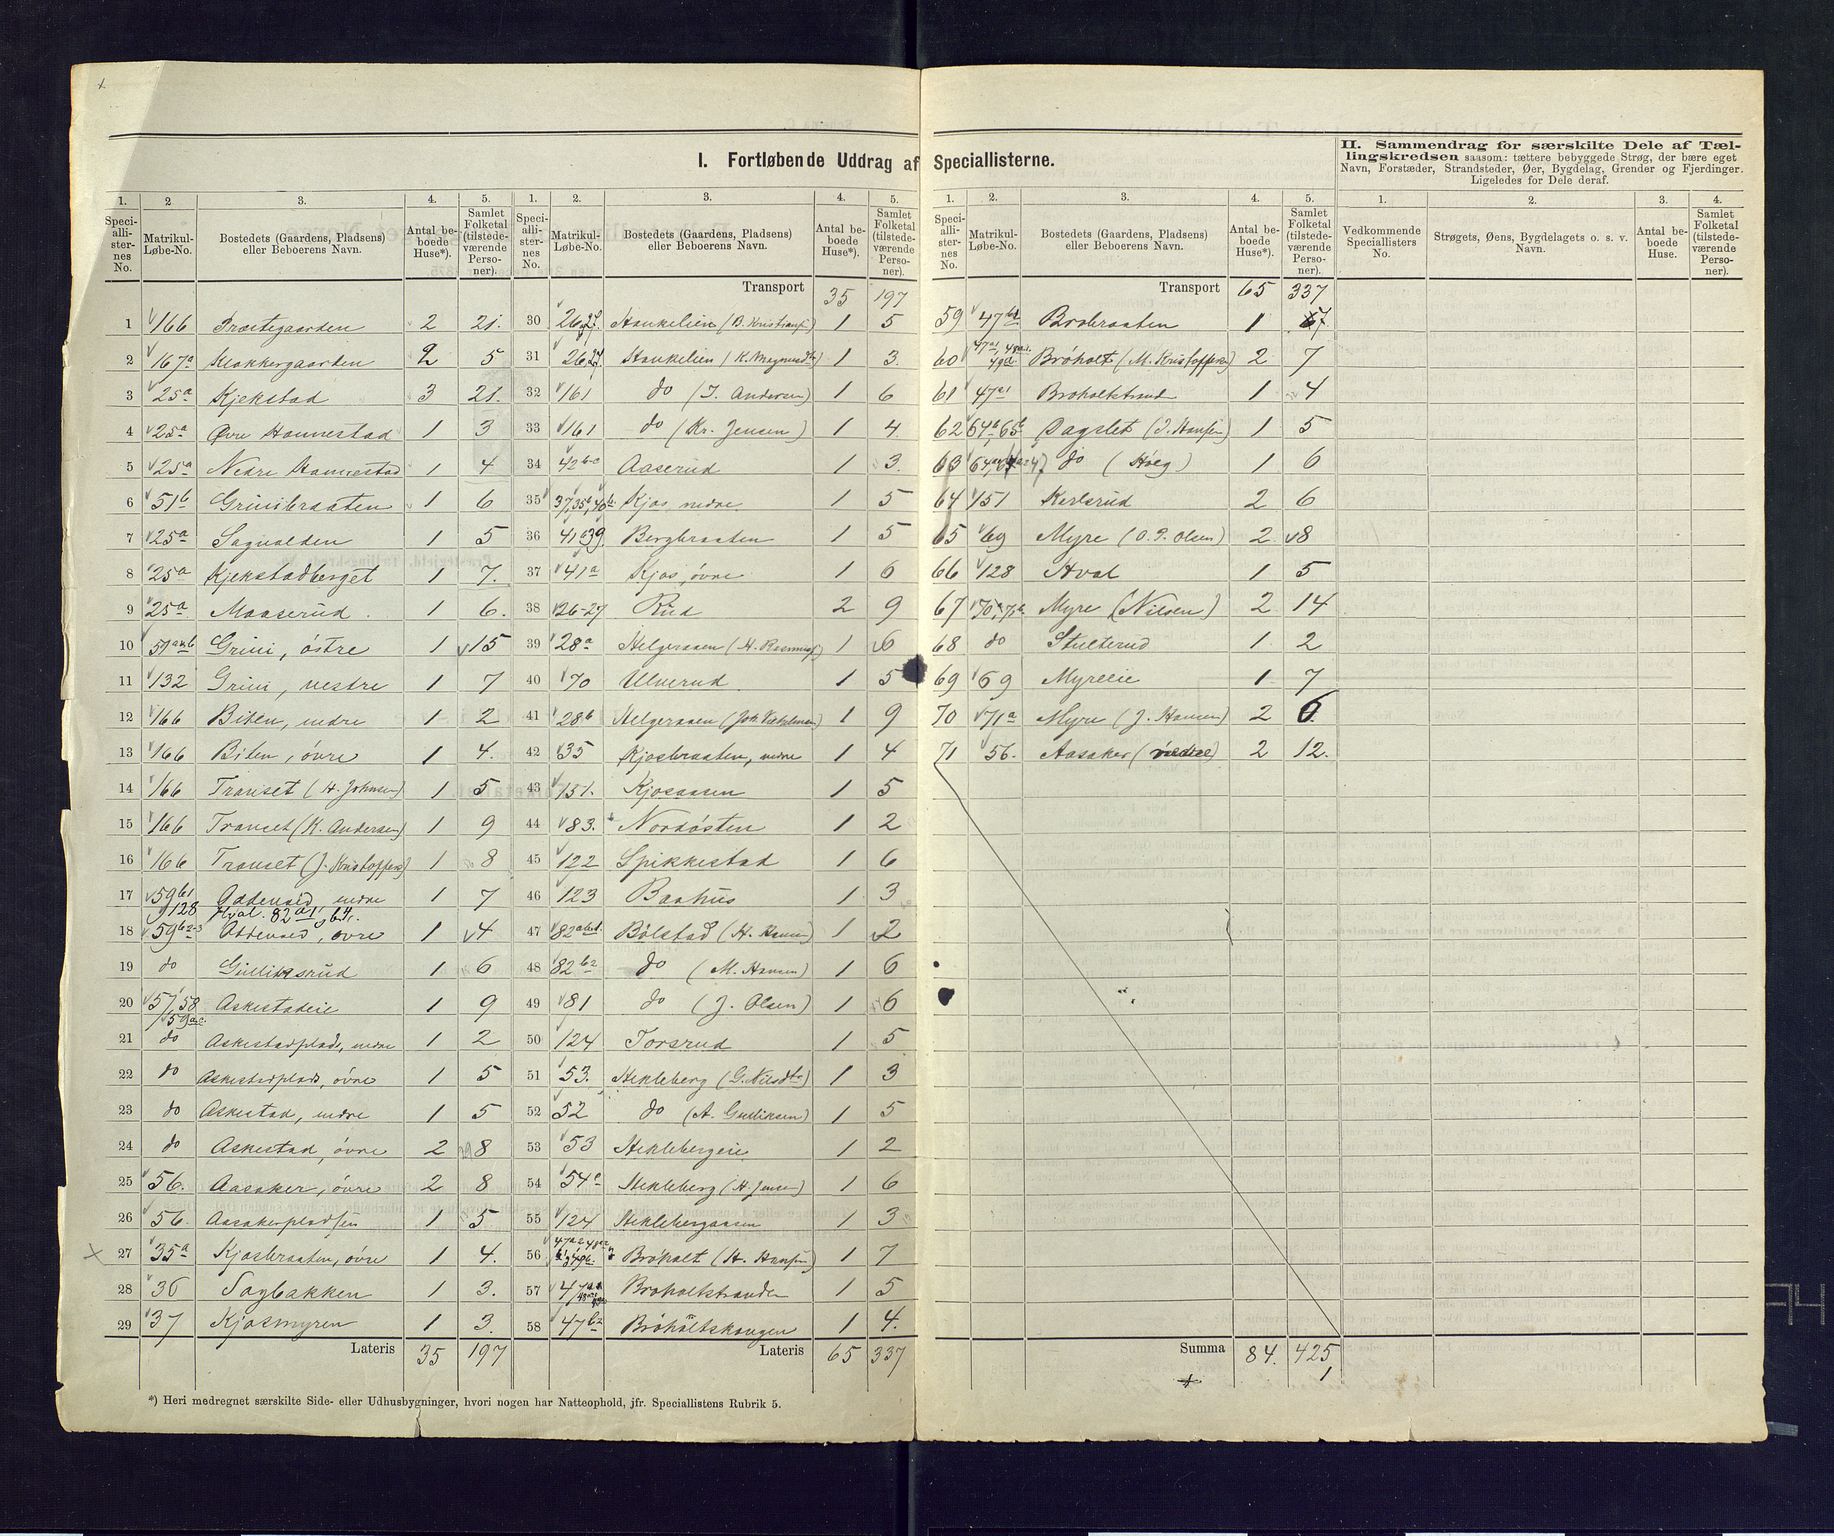 I. Fortløbende Uddrag af Speciallisterne.
II. Sammendrag for særskilte Dele af Tællingskredsen saasom: tættere bebyggede Strøg, der bære eget
Navn, Forstæder, Strandsteder, Øer, Bygdelag, Grender og Fjerdinger.
Ligeledes for Dele deraf.
1. 2 3. 4. 5.
Speciallisternes No. Matrikul-Løbe-No. Bostedets (Gaardens, Pladsens) eller Beboerens Navn. Antal beboede Huse*). Samlet Folketal (tilstedeværende Personer).
1 166 Præstegaarden 2 21.
2 167a Klokkergaarden 2 5
3 25a Kjekstad 3 21.
4 25a Øvre Hannestad 1 3
5 25a Nedre Hannestad 1 4
6 51b Grinibraaten 1 6
7 25a Sagvolden 1 5
8 25a Kjekstadberget 1 7.
9 25a Maaserud. 1 6.
10 51a Grini, østre 1 15
11 132 Grini, vestre 1 7
12 166 Biten, nedre 1 2
13 166 Biten, øvre 1 4.
14 166 Transet (H. Johnsen) 1 5
15 166 Transet (K. Andersen) 1 9
16 166 Transet (J. Kristoffers) 1 8
17 59b1 nedre 1 7
128 Hval. 82a1, 64.
18 59b2-3 øvre 1 4
19 do Gulliksrud 1 6
20 57, 58 Askestadeie 1 9
59
21 do Askestadplads, nedre 1 2
22 do Askestadplads, øvre 1 5
23 do Askestad, nedre 1 5
24 do Askestad, øvre 2 8
25 56. Aasaker, øvre 2 8
26 56. Aasakerpladsen 1 5
27 35a Kjosbraaten, øvre 1 4.
28 36 Sagbakken 1 3.
29 37 Kjosmyren 1 3.
Lateris 35 197
1. 2. 3. 4. 5.
Speciallisternes No. Matrikul-Løbe-No. Bostedets (Gaardens, Pladsens) eller Beboerens Navn. Antal beboede Huse*). Samlet Folketal (tilstedeværende Personer).
Transport 35 197
30 26, 27 Haukelien (B. Kristians) 1 5
31 26, 27 Haukelien (K. Magnusdtr) 1 3.
32 161 do (J. Andersen) 1 6
33 161 do (Kr. Jensen) 1 4.
34 42 Aaserud 1 3.
35 37, 35 Kjos nedre 1 5
36 41, 39 Bergbraaten 1 5
37 41a Kjos, øvre 1 6
38 26-27 Rud 2 9
39 28a Helgeraaen (H. Rasmus) 1 6
40 70 Ulverud 1 5
41 28b Helgeraaen 1 9
42 35 Kjosbraaten, nedre 1 4
43 131. Kjosaasen 1 5
44 83. Nordøsten 1 2
45 122 Spikkestad 1 6
46 123 Baahus 1 3
47 82 Bølstad (H. Hansen) 1 2
48 82b2 do (M. Hansen) 1 6
49 81 do (J. Olsen) 1 6
50 124 Torsrud 1 5
51 53. Hekleberg (G. Nilsdtr) 1 3
52 52 do (A. Gulliksen) 1 5
53 53 Heklebergeie 1 2
54 54a Hekleberg (H. Jensen) 1 6
55 124 Heklebergaasen 1 3
56 Brøholt (H. Hansen) 1 7
57 47 Brøholtstranden 1 5
58 47b2 Brøholtskaugen 1 4.
Lateris 65 337
1. 2. 3. 4. 5.
Speciallisternes No. Matrikul-Løbe-No. Bostedets (Gaardens, Pladsens) eller Beboerens Navn. Antal beboede Huse*). Samlet Folketal (tilstedeværende Personer).
Transport 65 337
59 47b1 Brobraaten 1 7
60 Brøholt (M. Kristoffers) 2 7
61 47a1 Broholtstrand 1 4
62 64a, 65 Dagslet (J. Hansen) 1 5
63 do (Høeg) 1 6
64 151 Kerlsrud 2 6
65 69 Myre (O. P. Olsen) 2 8
66 128 Hval 1 5
67 70, 71a Myre (Nilsen) 2 14
68 do Stulterud 1 2
69 69 Myreeie 1 7
70 71a Myre (J. Hansen) 2 6
71 56. Aasaker (nedre) 2 12.
Summa 84. 425
1
1. 2. 3. 4.
Vedkommende Speciallisters No. Strøgets, Øens, Bygdelagets o. s. v. Navn. Antal beboede Huse. Samlet Folketal (tilstedeværende Personer).
*) Heri medregnet særskilte Side- eller Udhusbygninger, hvori nogen har Natteophold, jfr. Speciallistens Rubrik 5.